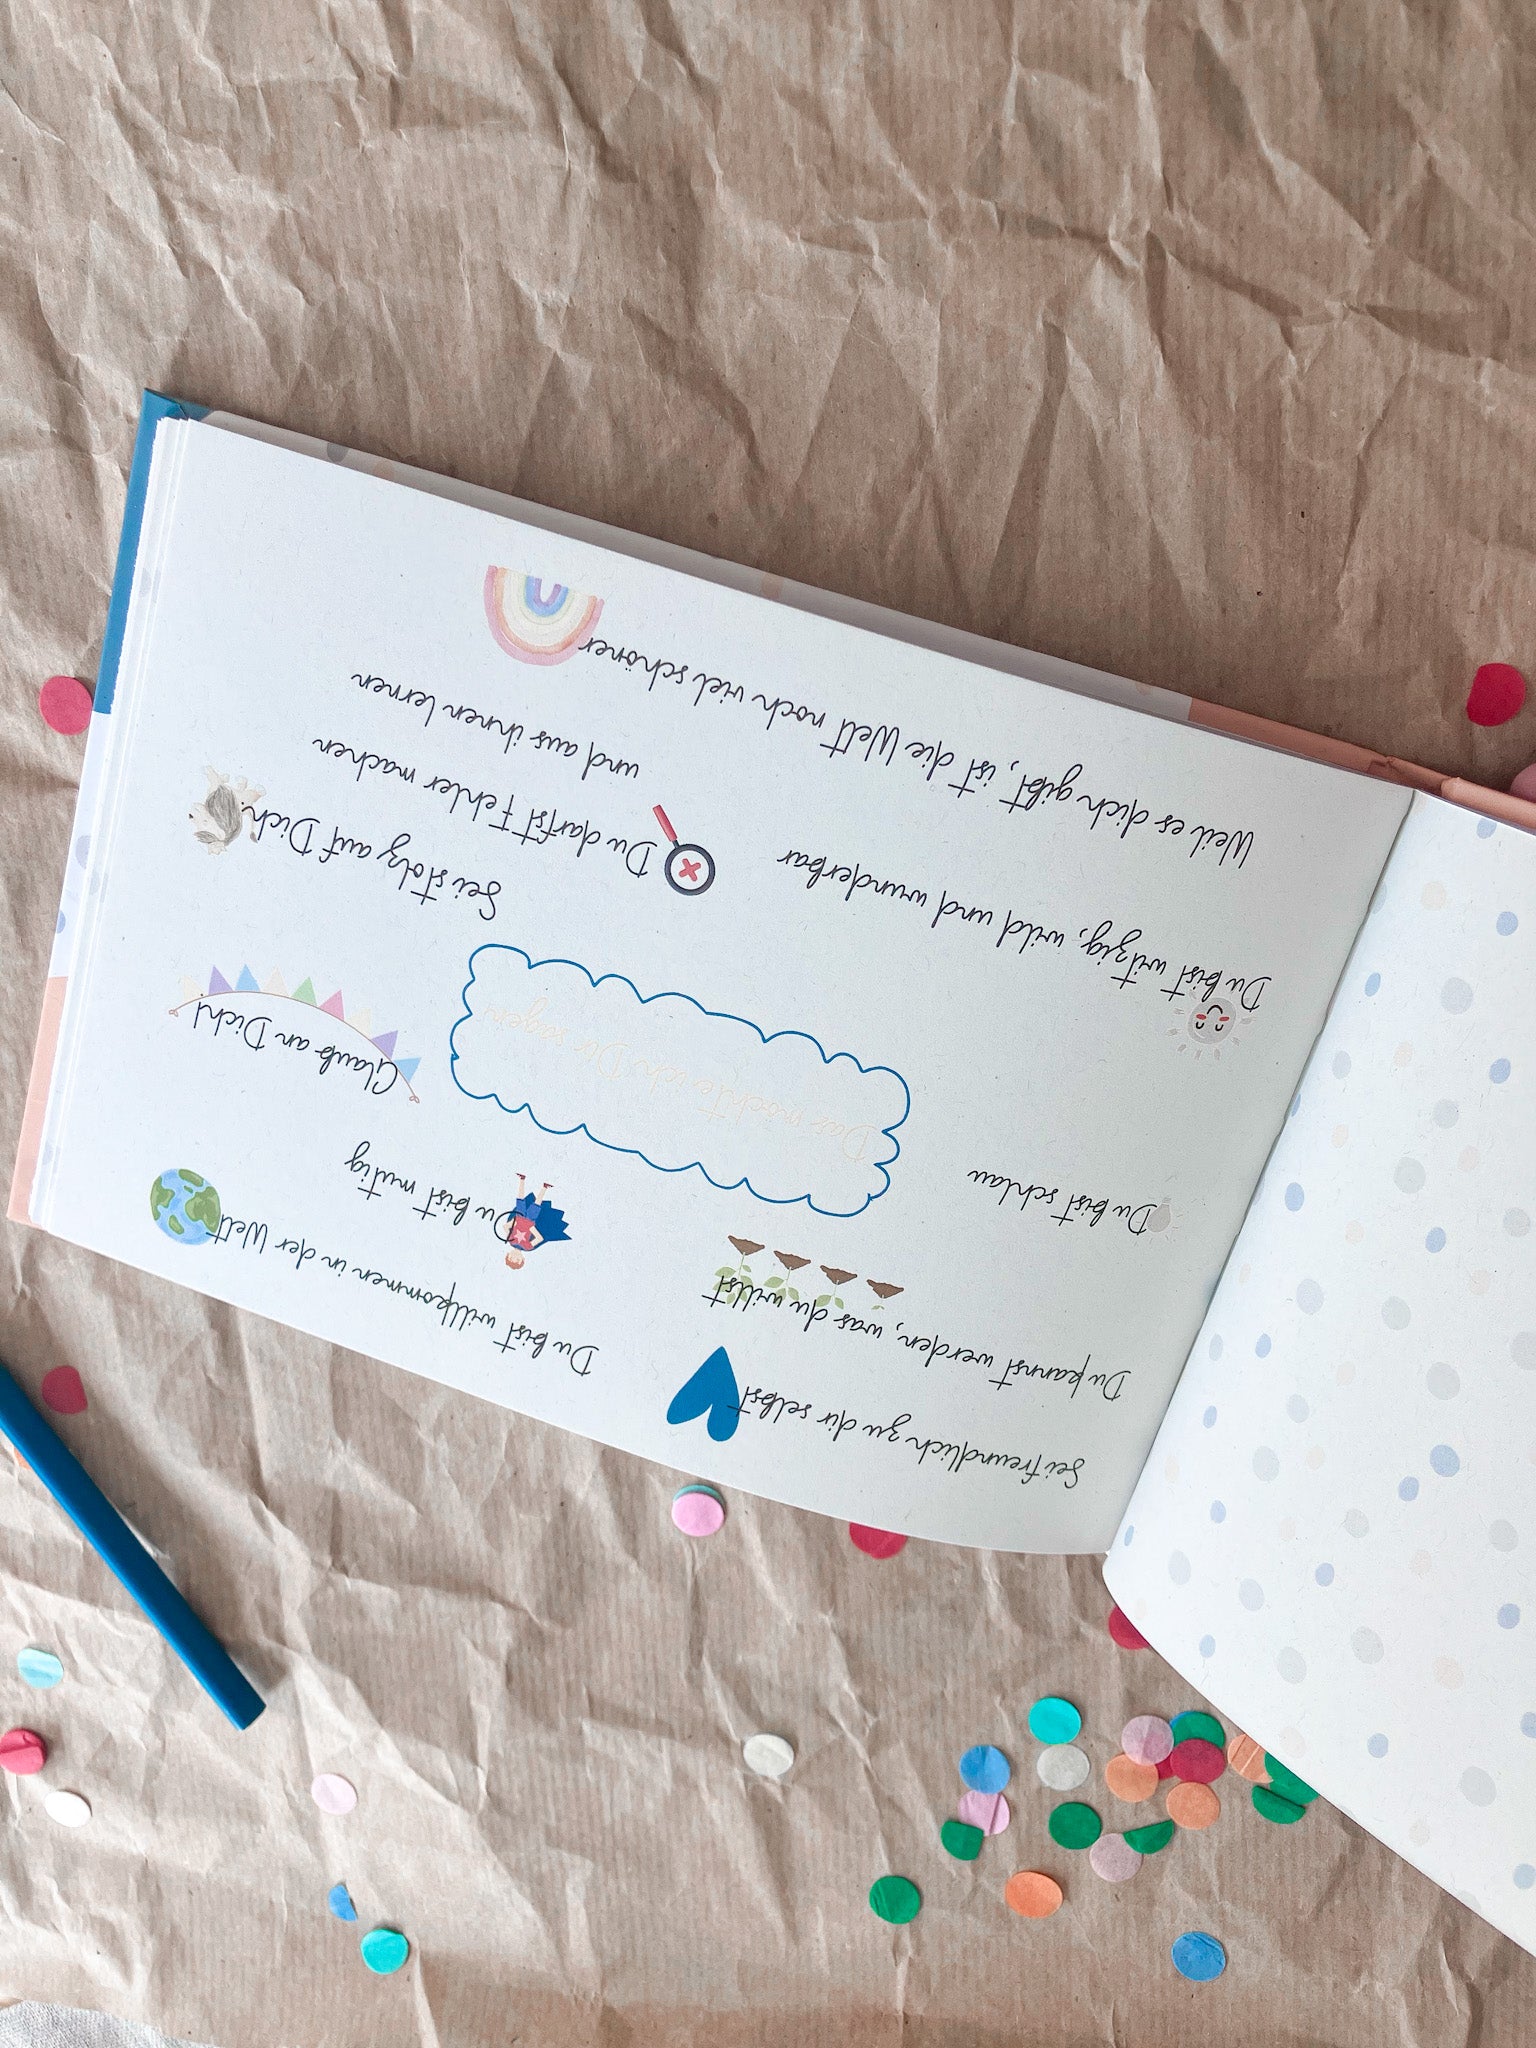 Sei freundlich zu dir selbst
Du kannst werden, was du willst
Du bist willkommen in der Welt
Du bist schlau
Du bist mutig
Das möchte ich Dir sagen:
Glaub an Dich!
Du bist witzig, wild und wunderbar
Sei stolz auf Dich.
Du darfst Fehler machen
und aus ihnen lernen
Weil es dich gibt, ist die Welt noch viel schöner